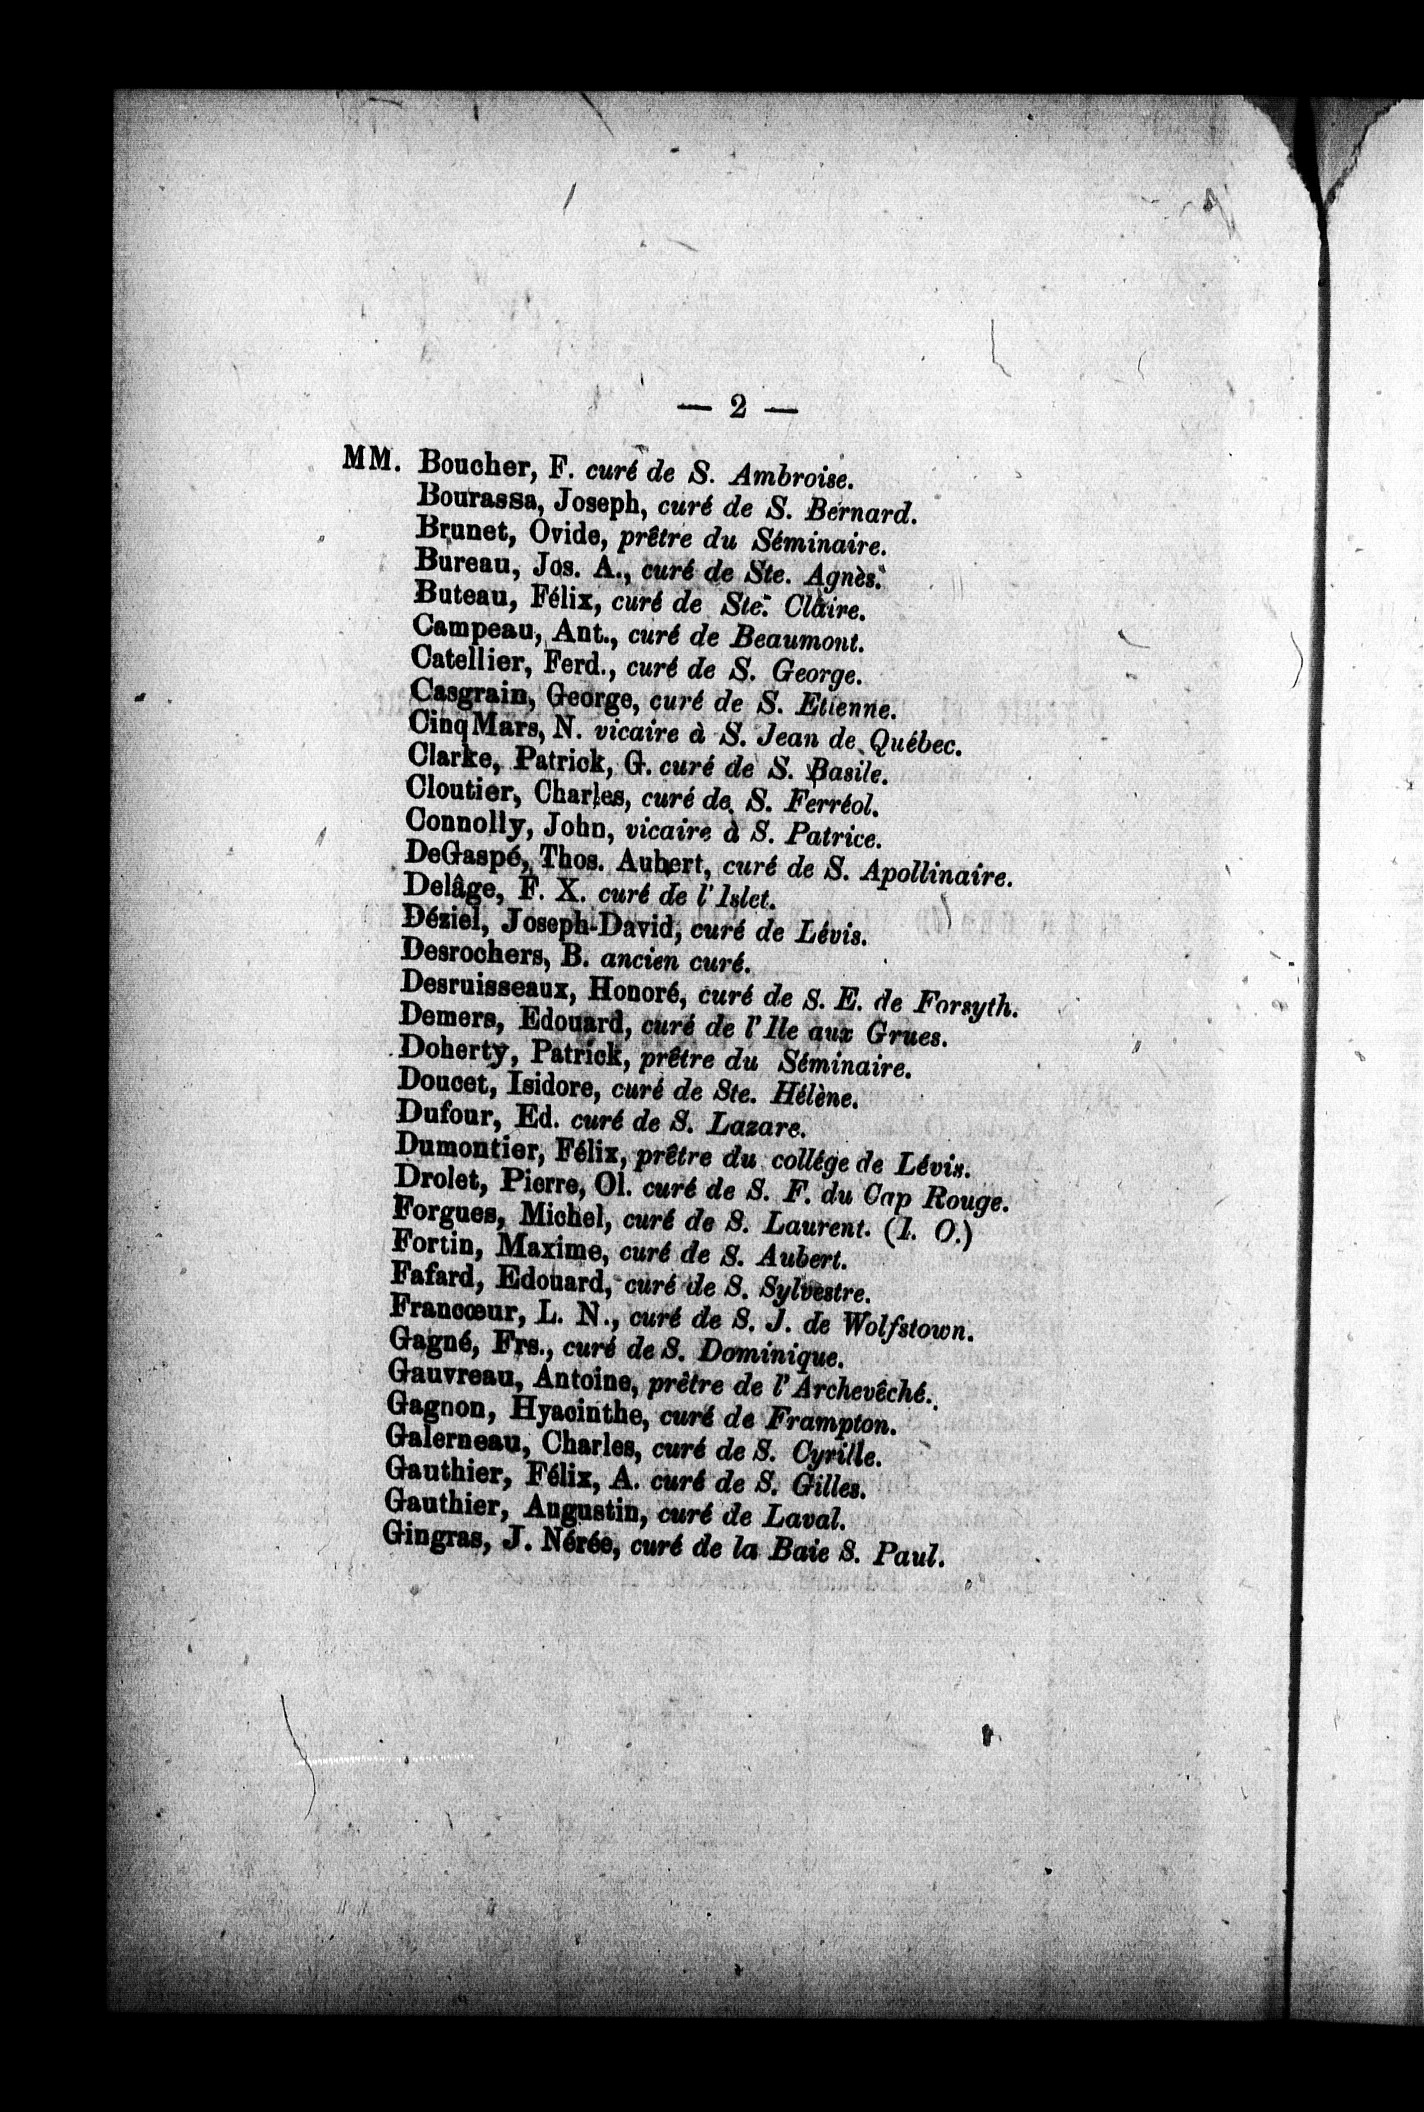 — 2 —
MM. Boucher, F. curé de S. Ambroise.
Bourassa, Joseph, curé de S. Bernard.
Brunet, Ovide, prêtre du Séminaire.
Bureau, Jos. A., curé de Ste. Agnès.
Buteau, Félix, curé de Ste. Claire.
Campeau, Ant., curé de Beaumont.
Catellier, Ferd., curé de S. George.
Casgrain, George, curé de S. Etienne.
Cinq Mars, N. vicaire à S. Jean de Québec.
Clarke, Patrick, G. curé de S. Basile.
Cloutier, Charles, curé de S. Ferréol.
Connolly, John, vicaire à S. Patrice.
DeGaspé, Thos. Aubert, curé de S. Apollinaire.
Delâge, F. X. curé de l'Islet.
Déziel, Joseph-David, curé de Lévis.
Desrochers, B. ancien curé.
Desruisseaux, Honoré, curé de S. E. de Forsyth.
Demers, Edouard, curé de l'Ile aux Grues.
Doherty, Patrick, prêtre du Séminaire.
Doucet, Isidore, curé de Ste. Hélène.
Dufour, Ed. curé de S. Lazare.
Dumontier, Félix, prêtre du collége de Lévis.
Drolet, Pierre, Ol. curé de S. F. du Cap Rouge.
Forgues, Michel, curé de S. Laurent. (I. O.)
Fortin, Maxime, curé de S. Aubert.
Fafard, Edouard, curé de S. Sylvestre.
Francœur, L. N., curé de S. J. de Wolfstown.
Gagné, Frs., curé de S. Dominique.
Gauvreau, Antoine, prêtre de l'Archevêché.
Gagnon, Hyacinthe, curé de Frampton.
Galerneau, Charles, curé de S. Cyrille.
Gauthier, Félix, A. curé de S. Gilles.
Gauthier, Augustin, curé de Laval.
Gingras, J. Nérée, curé de la Baie S. Paul.